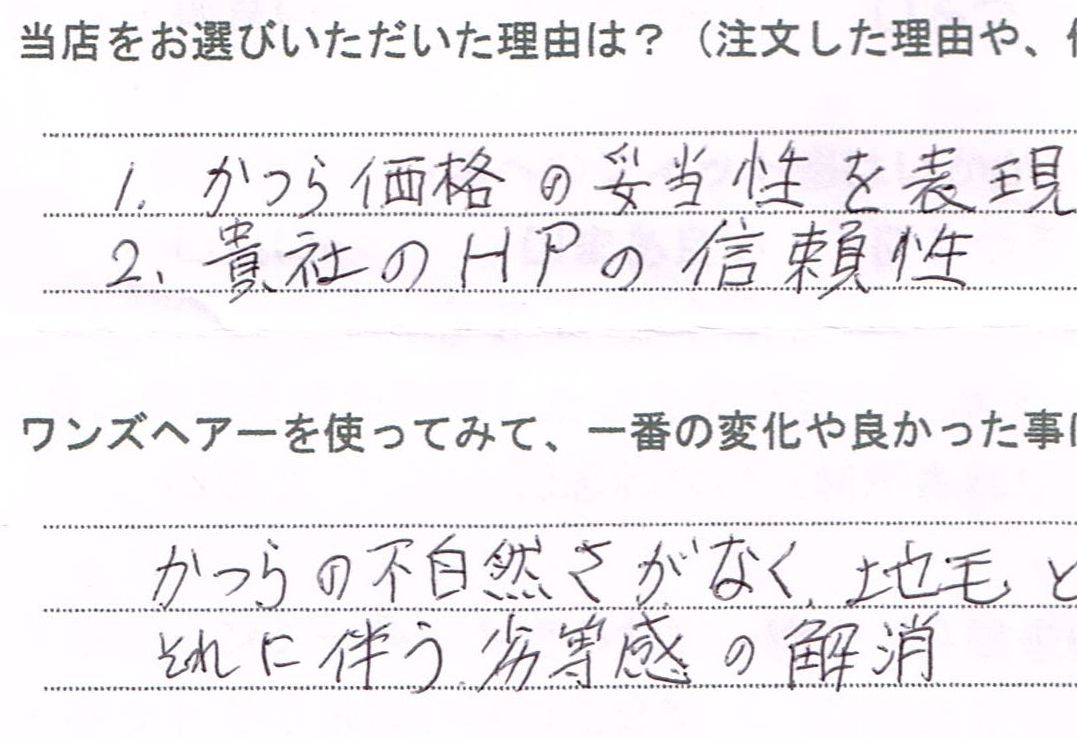 当店をお選びいただいた理由は？（注文した理由や、
1. かつら価格の妥当性を表現
2. 貴社のHPの信頼性
ワンズヘアーを使ってみて、一番の変化や良かった事
かつらの不自然さがなく、地毛と
それに伴う劣等感の解消